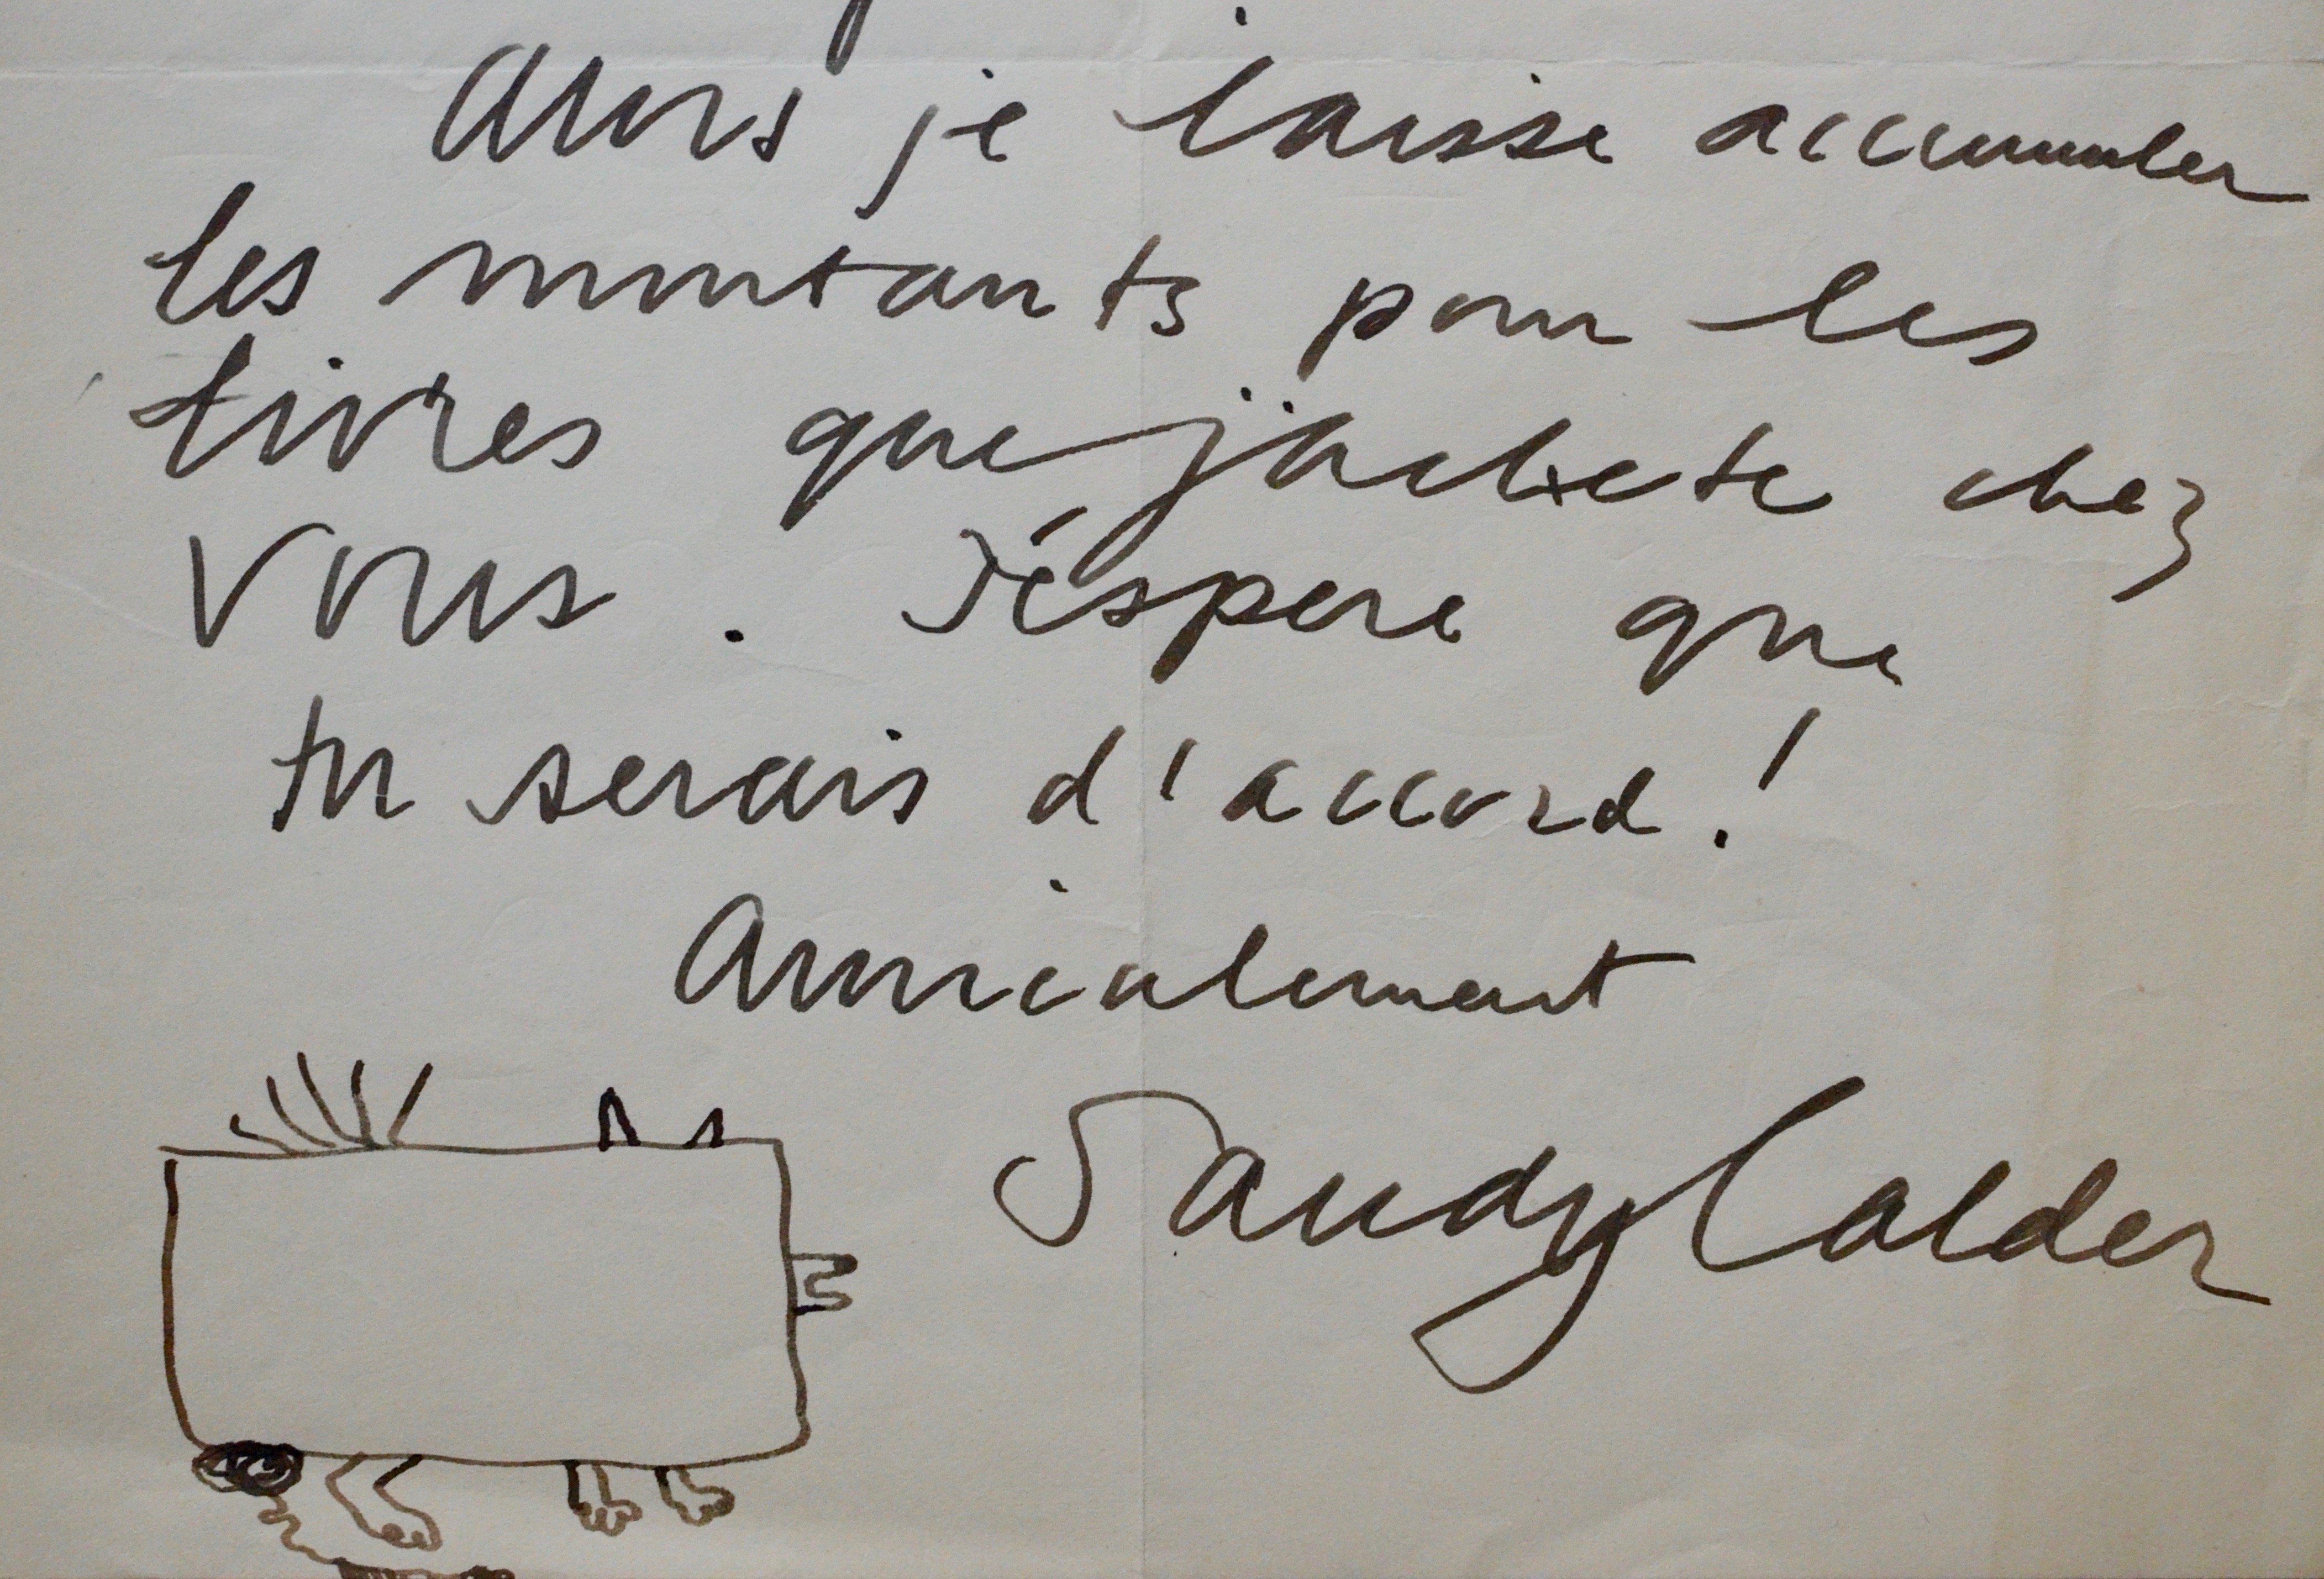 Alors je laisse accumuler
les montants pour les
livres que j'achete chez
vous. J'éspere que
tu serais d'accord!
Amicalement
Sandy Calder